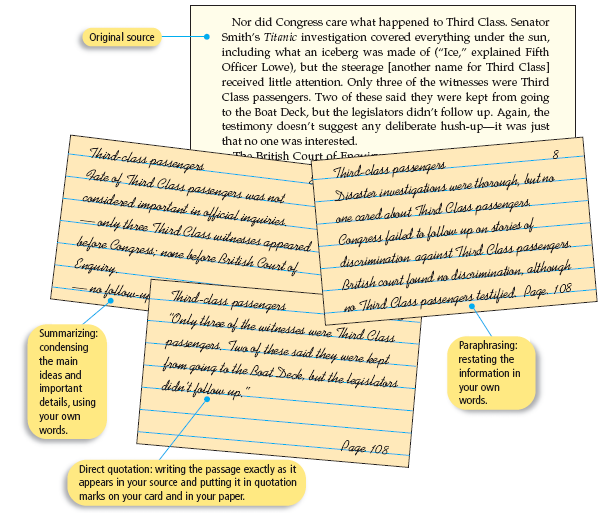 Original source
Nor did Congress care what happened to Third Class. Senator
Smith's Titanic investigation covered everything under the sun,
including what an iceberg was made of ("Ice," explained Fifth
Officer Lowe), but the steerage [another name for Third Class]
received little attention. Only three of the witnesses were Third
Class passengers. Two of these said they were kept from going
to the Boat Deck, but the legislators didn't follow up. Again, the
testimony doesn't suggest any deliberate hush-up—it was just
that no one was interested.
The British Court of
Third-class passengers
Fate of Third Class passengers was not
considered important in official inquiries.
— only three Third Class witnesses appeared
before Congress; none before British Court of
Enquiry.
— no follow-up
Third-class passengers 8
Disaster investigations were thorough, but no
one cared about Third Class passengers.
Congress failed to follow up on stories of
discrimination against Third Class passengers.
British court found no discrimination, although
no Third Class passengers testified. Page 108
Third-class passengers
"Only three of the witnesses were Third Class
passengers. Two of these said they were kept
from going to the Boat Deck, but the legislators
didn't follow up."
Page 108
Summarizing:
condensing
the main
ideas and
important
details, using
your own
words.
Paraphrasing:
restating the
information in
your own
words.
Direct quotation: writing the passage exactly as it
appears in your source and putting it in quotation
marks on your card and in your paper.